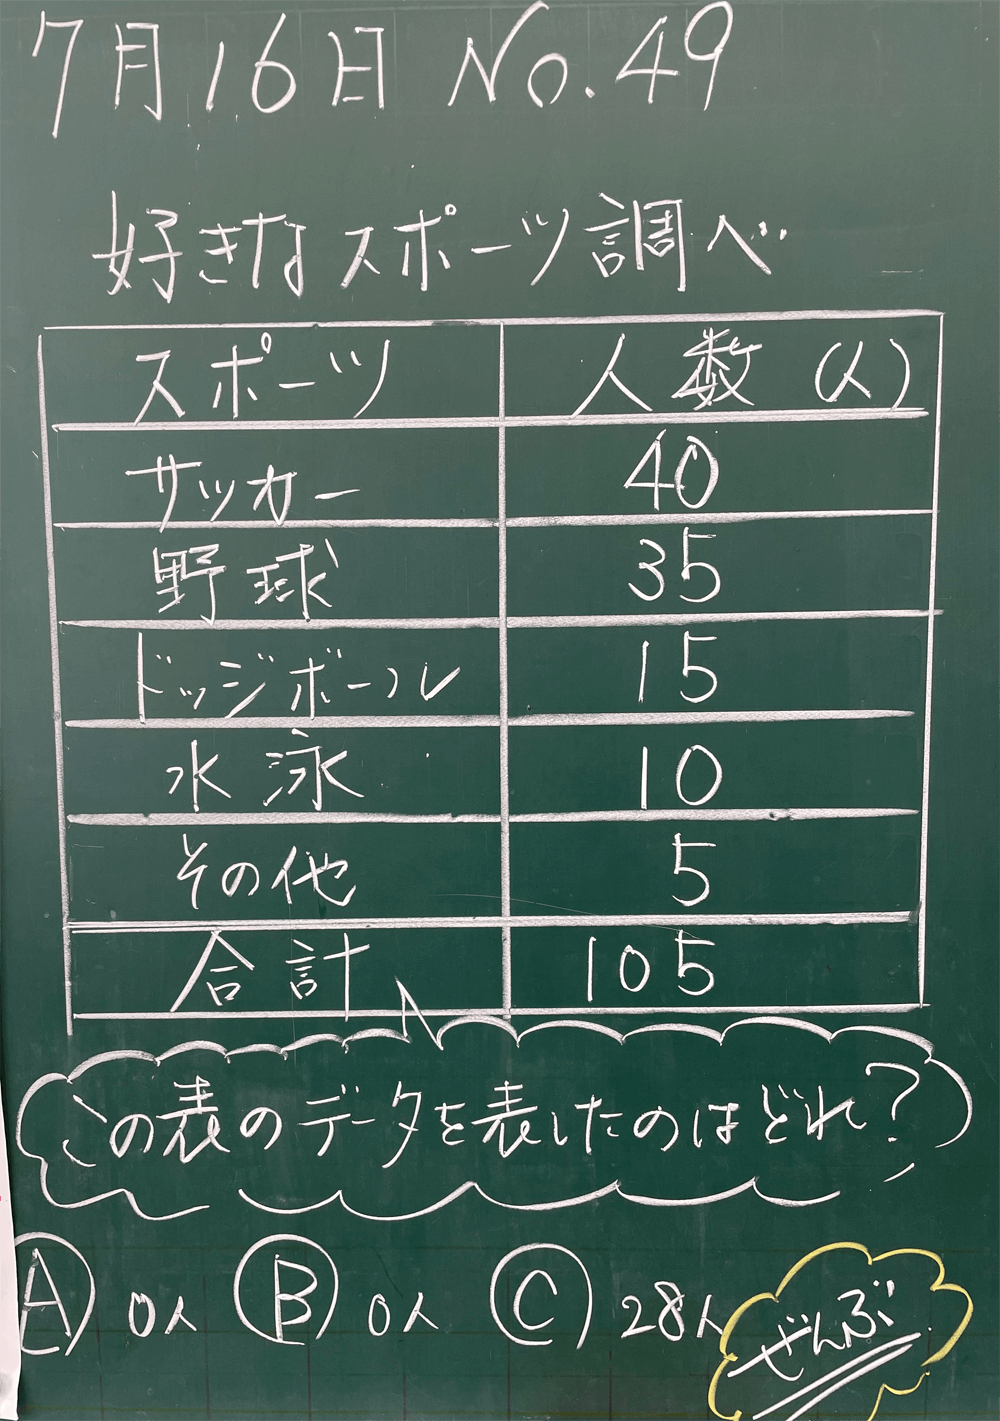 7月16日 No.49
好きなスポーツ調べ
スポーツ 人数 (人)
サッカー 40
野球 35
ドッジボール 15
水泳 10
その他 5
合計 105
この表のデータを表したのはどれ?
Ⓐ 0人 Ⓑ 0人 Ⓒ 28人
ぜんぶ